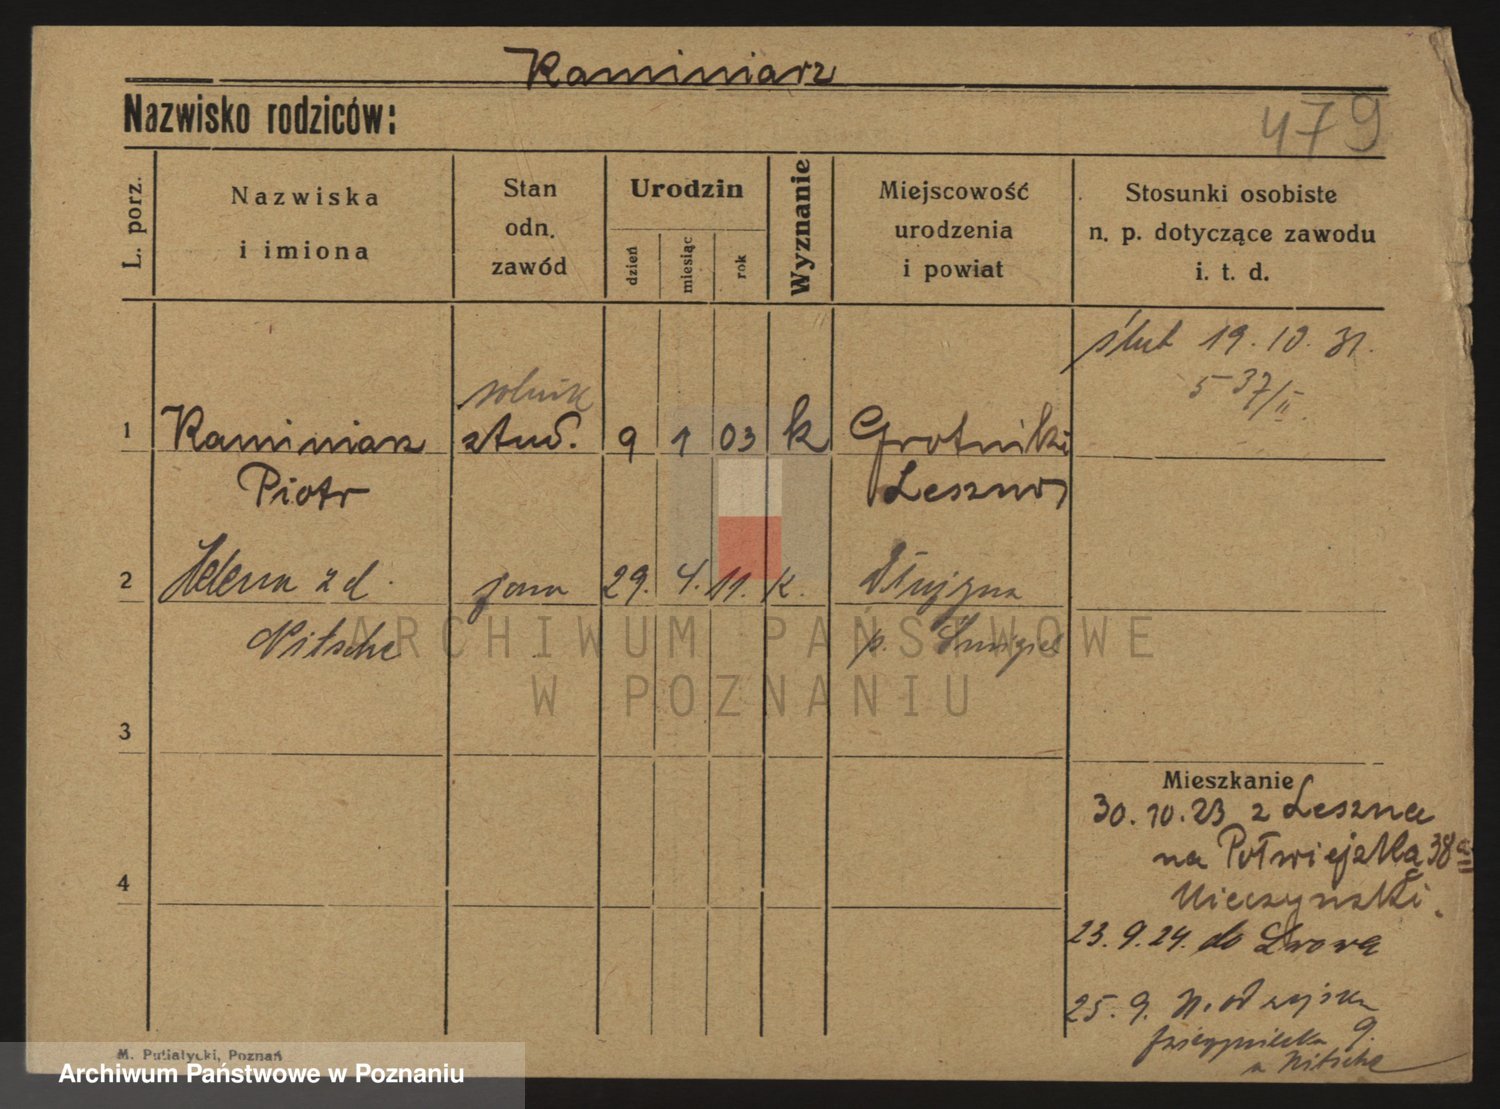 Kaminiarz
Nazwisko rodziców:
479
L. porz.
Nazwiska
i imiona
Stan
odn.
zawód
Urodzin
dzień
miesiąc
rok
Wyznanie
Miejscowość
urodzenia
i powiat
Stosunki osobiste
n. p. dotyczące zawodu
i. t. d.
ślub 19. 10. 31.
537/II
rolnik
1 Kaminiarz stud. 9 1 03 k Grotniki
Piotr Leszno
2 Helena z d. żona 29. 4. 11. k. Dłużyna
Nitsche p. Śmigiel
ARCHIWUM PAŃSTWOWE
W POZNANIU
3
4
Mieszkanie
30.10.23 z Leszna
na Półwiejską 38a
23.9.24. do Lwowa
25. 9.
9.
u Nitsche
M. Putiatycki, Poznań
Archiwum Państwowe w Poznaniu